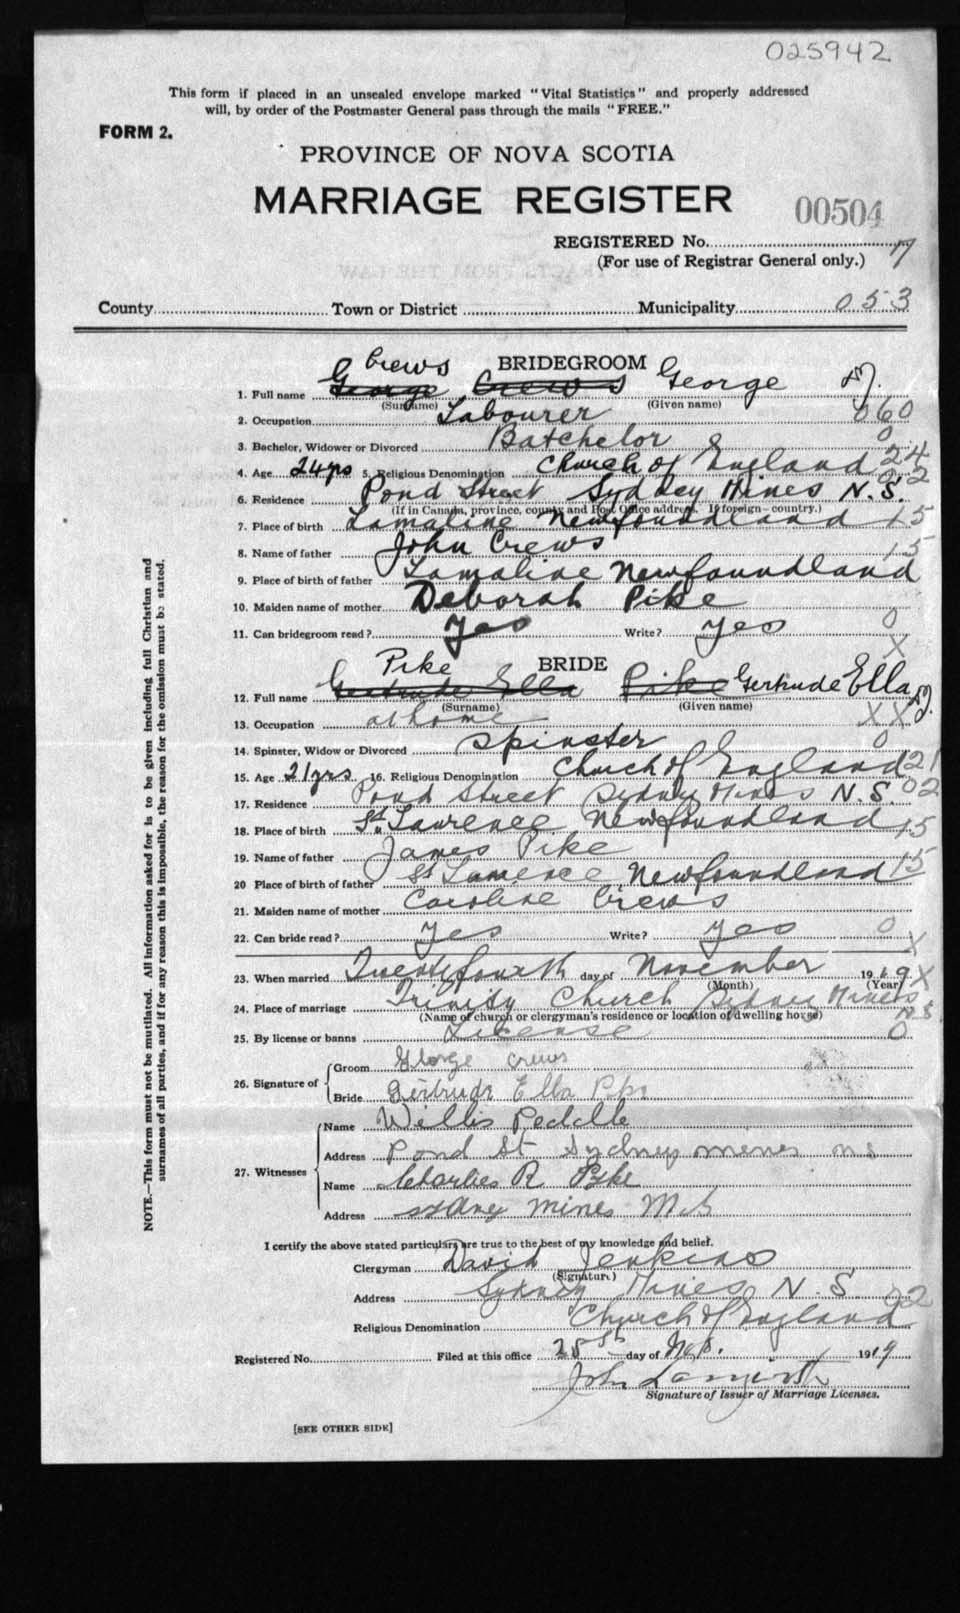 025942
This form if placed in an unsealed envelope marked "Vital Statistics" and properly addressed
will, by order of the Postmaster General pass through the mails "FREE."
FORM 2.
PROVINCE OF NOVA SCOTIA
MARRIAGE REGISTER
00504
REGISTERED No.
(For use of Registrar General only.) 17
County Town or District Municipality 053
BRIDEGROOM
Crews
1. Full name George Crews George
(Surname) (Given name)
2. Occupation Labourer 060
3. Bachelor, Widower or Divorced Batchelor 0
4. Age 24 yrs 5. Religious Denomination Church of England 24
6. Residence Pond Street Sydney Mines N.S. 02
(If in Canada, province, county and Post Office address. If foreign—country.)
7. Place of birth Lamaline Newfoundland 15
8. Name of father John Crews 15
9. Place of birth of father Lamaline Newfoundland
10. Maiden name of mother Deborah Pike
11. Can bridegroom read? Yes Write? Yes 0
X
BRIDE
Pike
12. Full name Gertrude Ella Pike Gertrude Ella
(Surname) (Given name)
13. Occupation at home XX
14. Spinster, Widow or Divorced Spinster 0
15. Age 21 yrs 16. Religious Denomination Church of England 21
17. Residence Pond Street Sydney Mines N.S. 02
18. Place of birth St. Lawrence Newfoundland 15
19. Name of father James Pike
20 Place of birth of father St Lawrence Newfoundland 15
21. Maiden name of mother Caroline Crews
22. Can bride read? Yes Write? Yes 0
X
23. When married Twenty fourth day of November 1919 X
(Month) (Year)
24. Place of marriage Trinity Church Sydney Mines N.S.
(Name of church or clergyman's residence or location of dwelling house)
25. By license or banns License 0
26. Signature of Groom George Crews
Bride Gertrude Ella Pike
27. Witnesses
Name Willis Peddle
Address Pond St. Sydney mines ns
Name Charlies R Pike
Address sydney mines N S
I certify the above stated particulars are true to the best of my knowledge and belief.
Clergyman David Jenkins
(Signature)
Address Sydney Mines N.S. 02
Religious Denomination Church of England
Registered No. Filed at this office 25 day of Nov. 1919
John
Signature of Issuer of Marriage Licenses.
[SEE OTHER SIDE]
NOTE.—This form must not be mutilated. All information asked for is to be given including full Christian and
surnames of all parties, and if for any reason this is impossible, the reason for the omission must be stated.